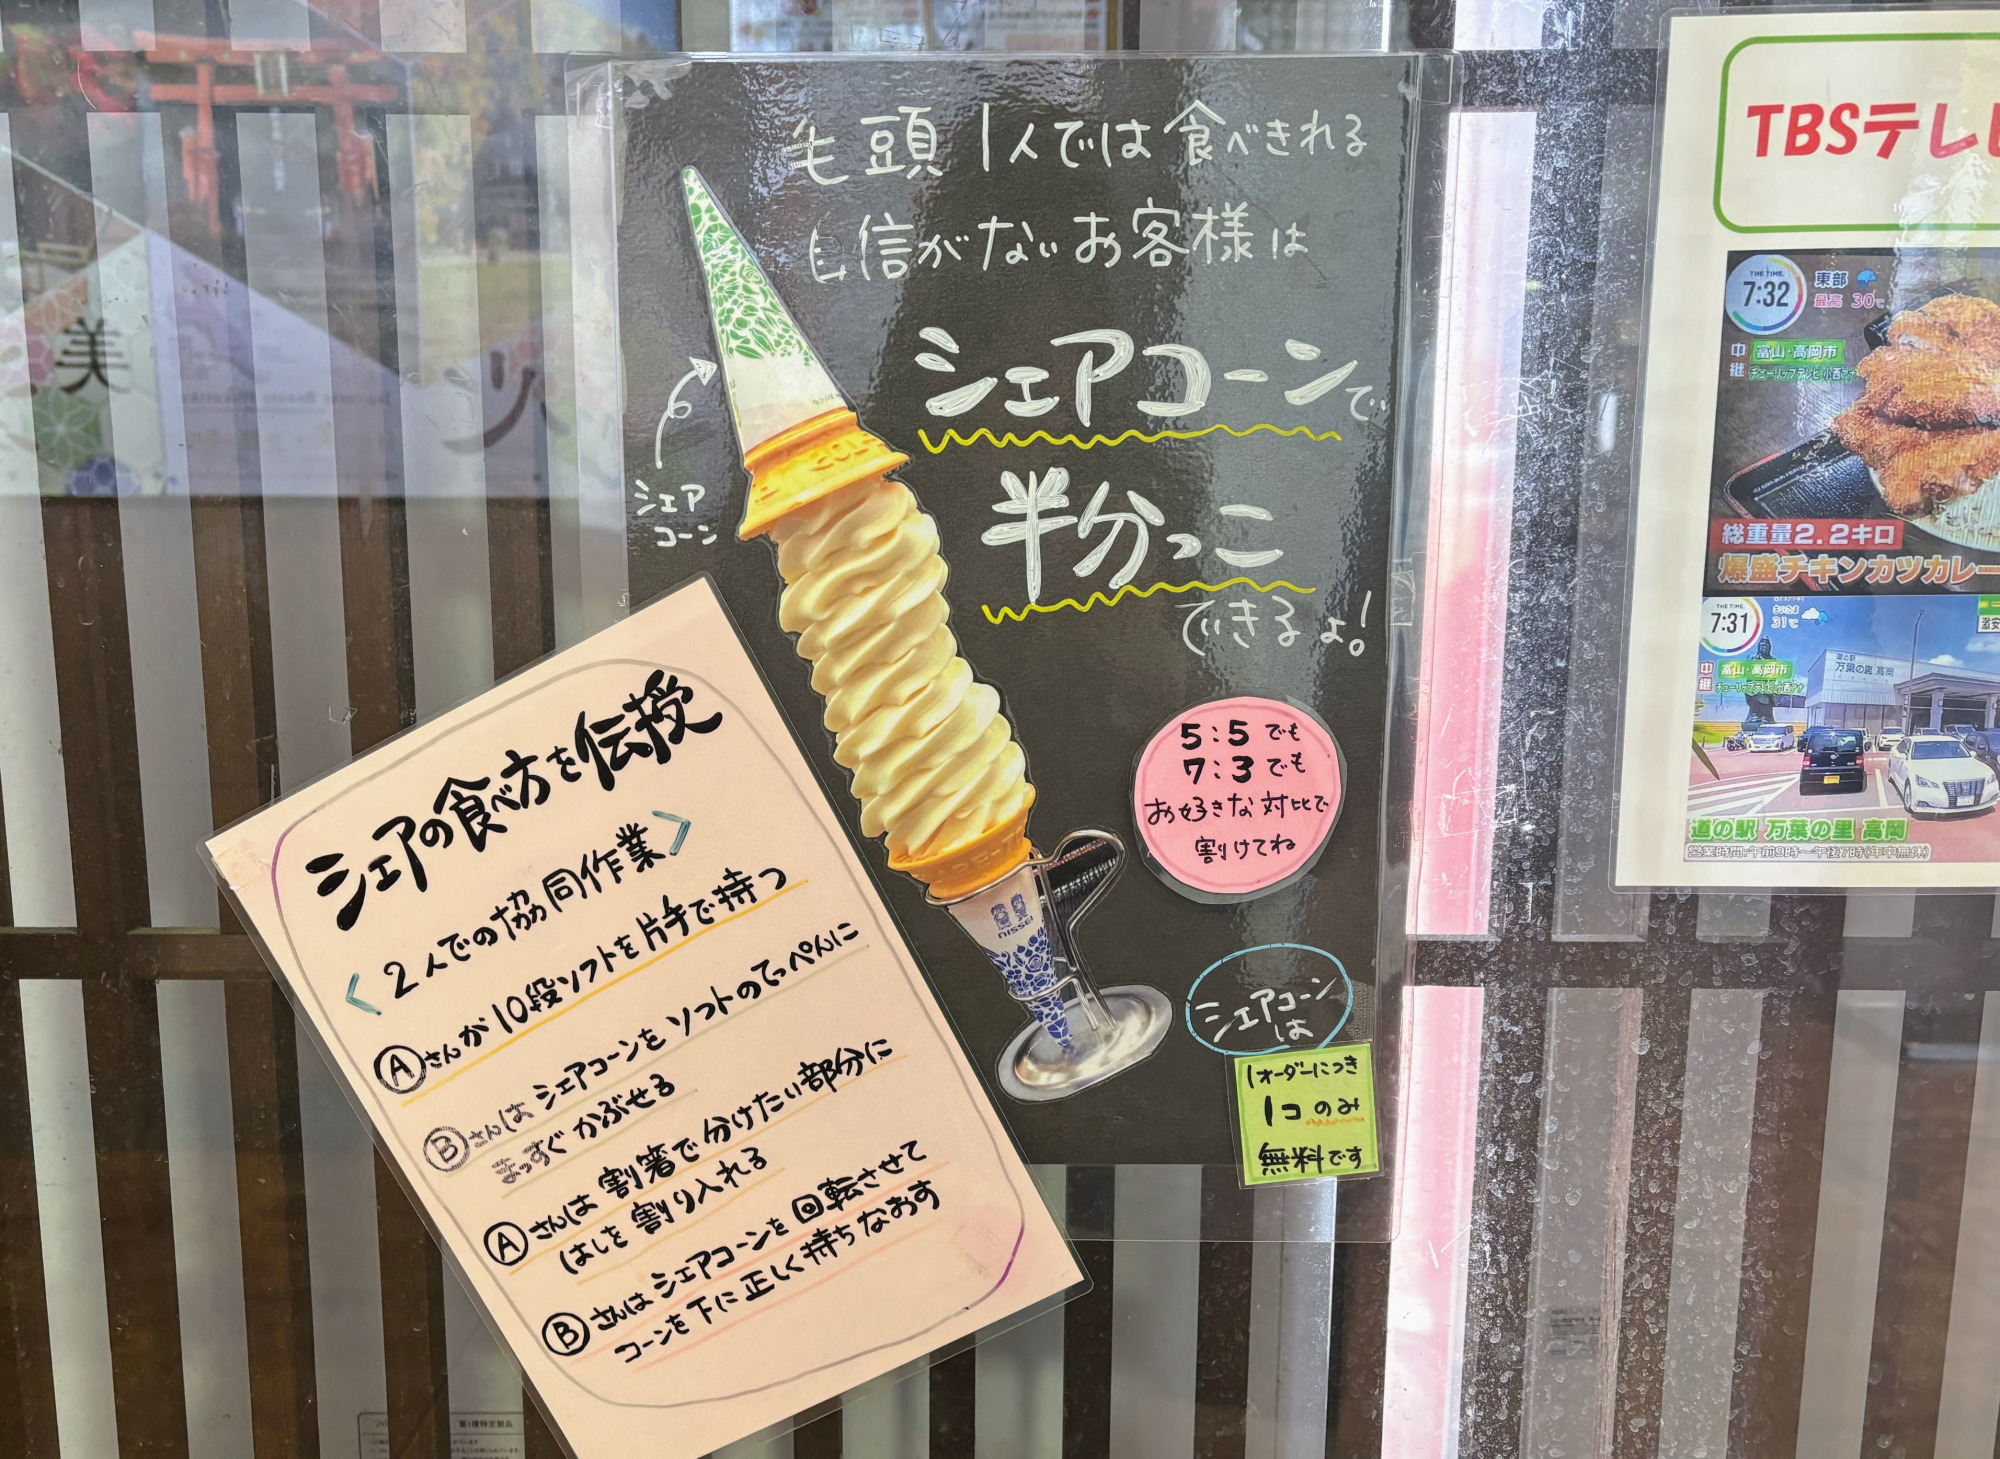 頭 1人では食べきれる
信がないお客様は
シェアコーンで
半分っこ
できるよ!
シェア
コーン
NISSEI
5:5でも
7:3でも
お好きな対比で
割けてね
シェアコーン
は
1オーダーにつき
1コのみ
無料です
シェアの食べ方を伝授
<2人での協同作業>
Aさんが10段ソフトを片手で持つ
Bさんはシェアコーンをソフトのてっぺんに
まっすぐかぶせる
Aさんは割箸で分けたい部分に
はしを割り入れる
Bさんはシェアコーンを回転させて
コーンを下に正しく持ちなおす
TBSテレビ
THE TIME,
7:32
東部
最高 30℃
中継
富山・高岡市
チューリップテレビ 小西アナ
総重量2.2キロ
爆盛チキンカツカレー
THE TIME,
7:31
さいたま
31℃
激安
中継
富山・高岡市
チューリップテレビ 小西アナ
道の駅
万葉の里 高岡
道の駅 万葉の里 高岡
営業時間:午前9時~午後7時(年中無休)
美
第1種特定製品